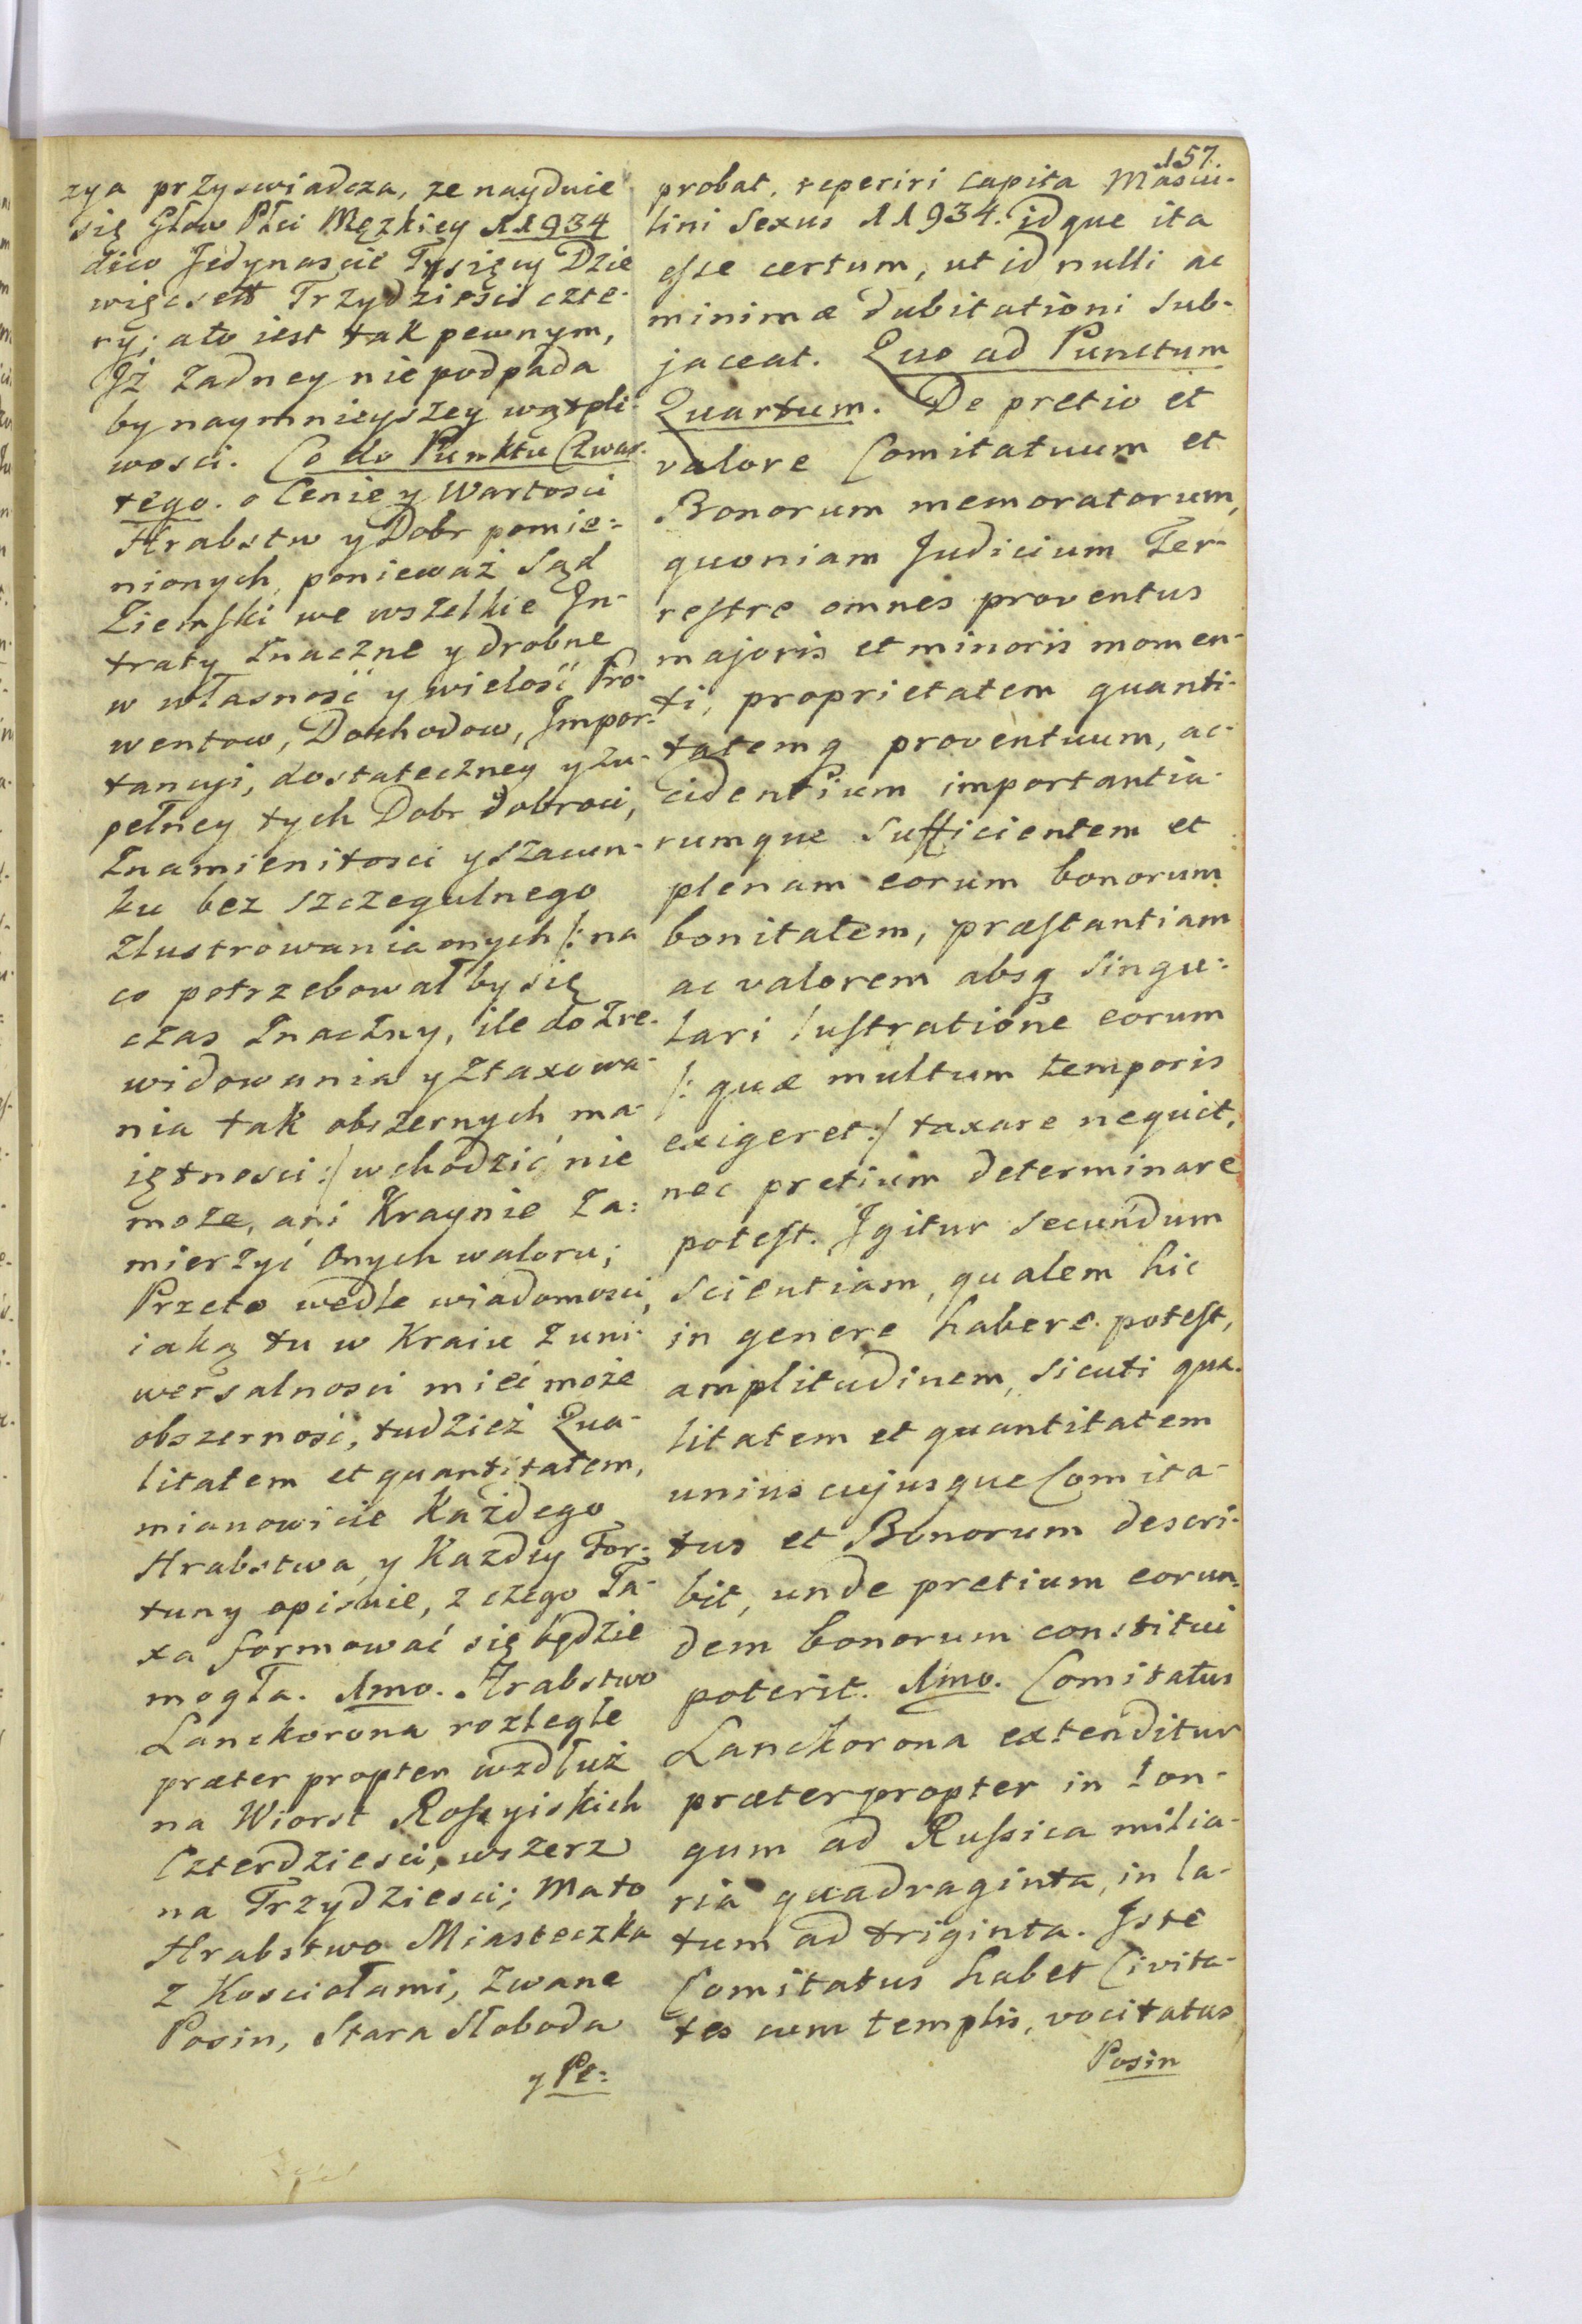 157.
zya przyswiadcza, ze nayduie
się Głow Płci Męzkiey 11934
dico Jedynascie Tysięcy Dzie
więcsett Trzydzieści czte-
ry; a to iest tak pewnym,
Jż zadney nie podpada
by naymnieyszey wątpli-
wosci. Co do Punktu Czwar-
tego. o Cenie y Wartosci
Hrabstw y Dobr pomie:
nionych, ponieważ Sąd
Ziemski we wszelkie In-
traty znaczne y drobne
w własność y wielość Pro-
wentow, Dochodow, Impor-
tancyi, dostateczney y zu-
pełney tych Dobr dobroci,
znamienitosci y szacun-
ku bez szczegulnego
zlustrowania onych /: na
co potrzebował by się
czas znaczny, ile do zre-
widowania y ztaxowa-
nia tak obszernych ma-
iętnosci :/ wchodzić nie
moze, ani Kraynie za:
mierzyć Onych waloru;
Przeto wedle wiadomosci,
iaką tu w Kraiu z uni-
wersalnosci mieć może
obszerność, tudzież Qua-
litatem et quantitatem,
mianowicie Każdego
Hrabstwa y Kazdey For-
tuny opisuie, z czego Ta-
xa formować się będzie
mogła. 1mo. Hrabstwo
Lanckorona rozległe
præter propter wzdłuż
na Wiorst Rossyiskich
Czterdziesci, wszerz
na Trzydziesci; Ma to
Hrabstwo Miasteczka
z Kosciołami, zwane
Posin, Stara Słoboda
y Pe:
probat, reperiri capita Mascu-
lini Sexus 11934. idque ita
esse certum, ut id nulli ac
minimæ dubitationi sub-
jaceat. Quo ad Punctum
Quartum. De pretio et
valore Comitatuum et
Bonorum memoratorum,
quoniam Judicium Ter-
restre omnes proventus
majoris et minoris momen-
ti, proprietatem quanti-
tatemq proventuum, ac-
cidentium importantia-
rumque sufficientem et
plenam eorum bonorum
bonitatem, præstantiam
ac valorem absq singu:
lari lustratione eorum
/: quæ multum temporis
exigeret :/ taxare nequit,
nec pretium determinare
potest. Igitur secundum
scientiam, qualem hic
in genere habere potest,
amplitudinem, sicuti qua-
litatem et quantitatem
unius cujusque Comita-
tus et Bonorum descri-
bit, unde pretium eorun-
dem bonorum constitui
poterit. 1mo. Comitatus
Lanckorona extenditur
præterpropter in lon-
gum ad Russica milia-
ria quadraginta, in la-
tum ad triginta. Iste
Comitatus habet Civita-
tes cum templis, vocitatas
Posin